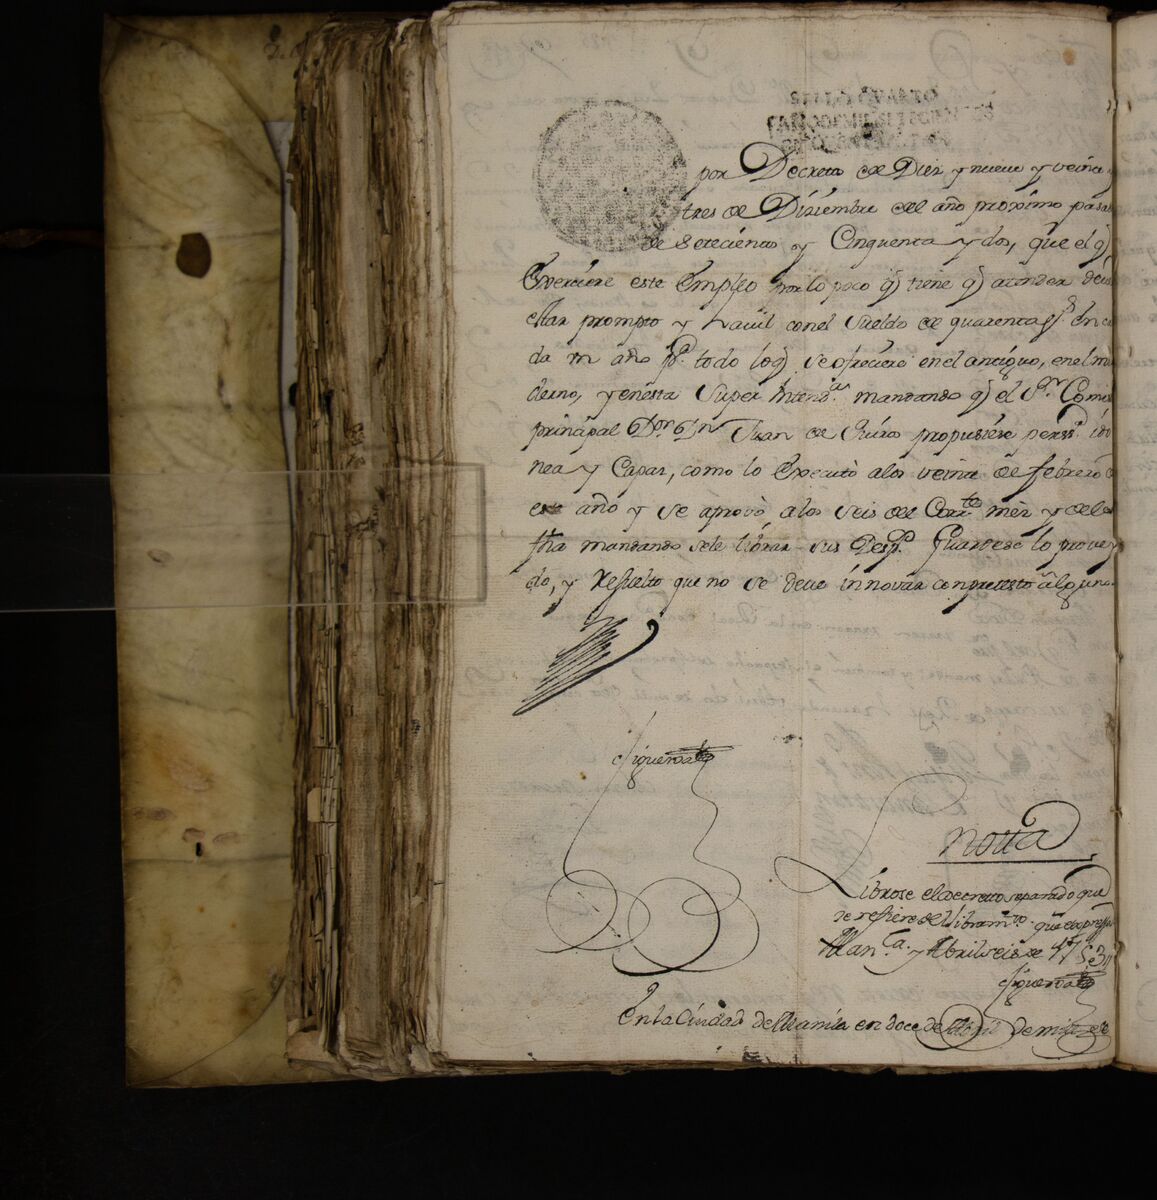 SELLO QVARTO
por Decreto de Diez y nueve y veinte y
tres de Diziembre del año proximo pasad
de Setecientos y Cinquenta y dos, que el q̃
Exerciere este Empleo por lo poco q̃ tiene q̃ atender deve
estar prompto y havil con el Sueldo de quarenta p.s en ca
da un año p.a todo lo q̃ se ofreciere en el antiguo, en el mo
derno, y en esta Super Intend.a mandando q̃ el S.or Comis
principal D.or D.n Juan de Suiro propusiese perss.a ido
nea y Capaz, como lo Executò a los veinte de febrero de
este año y se aprovò a los seis del Corr.te mez y de la
fha mandando se le librar sus Desp.s Guardese lo provey
do, y Resuelto que no se deve innovar con pretexto alguno.
Figueroa
Notta
Librose el decreto separado que
se refiere del libram.to que expressa
Man.la y Abril seis de 1753
Figueroa
En la Ciudad de Manila en doce de Abril de mil sete